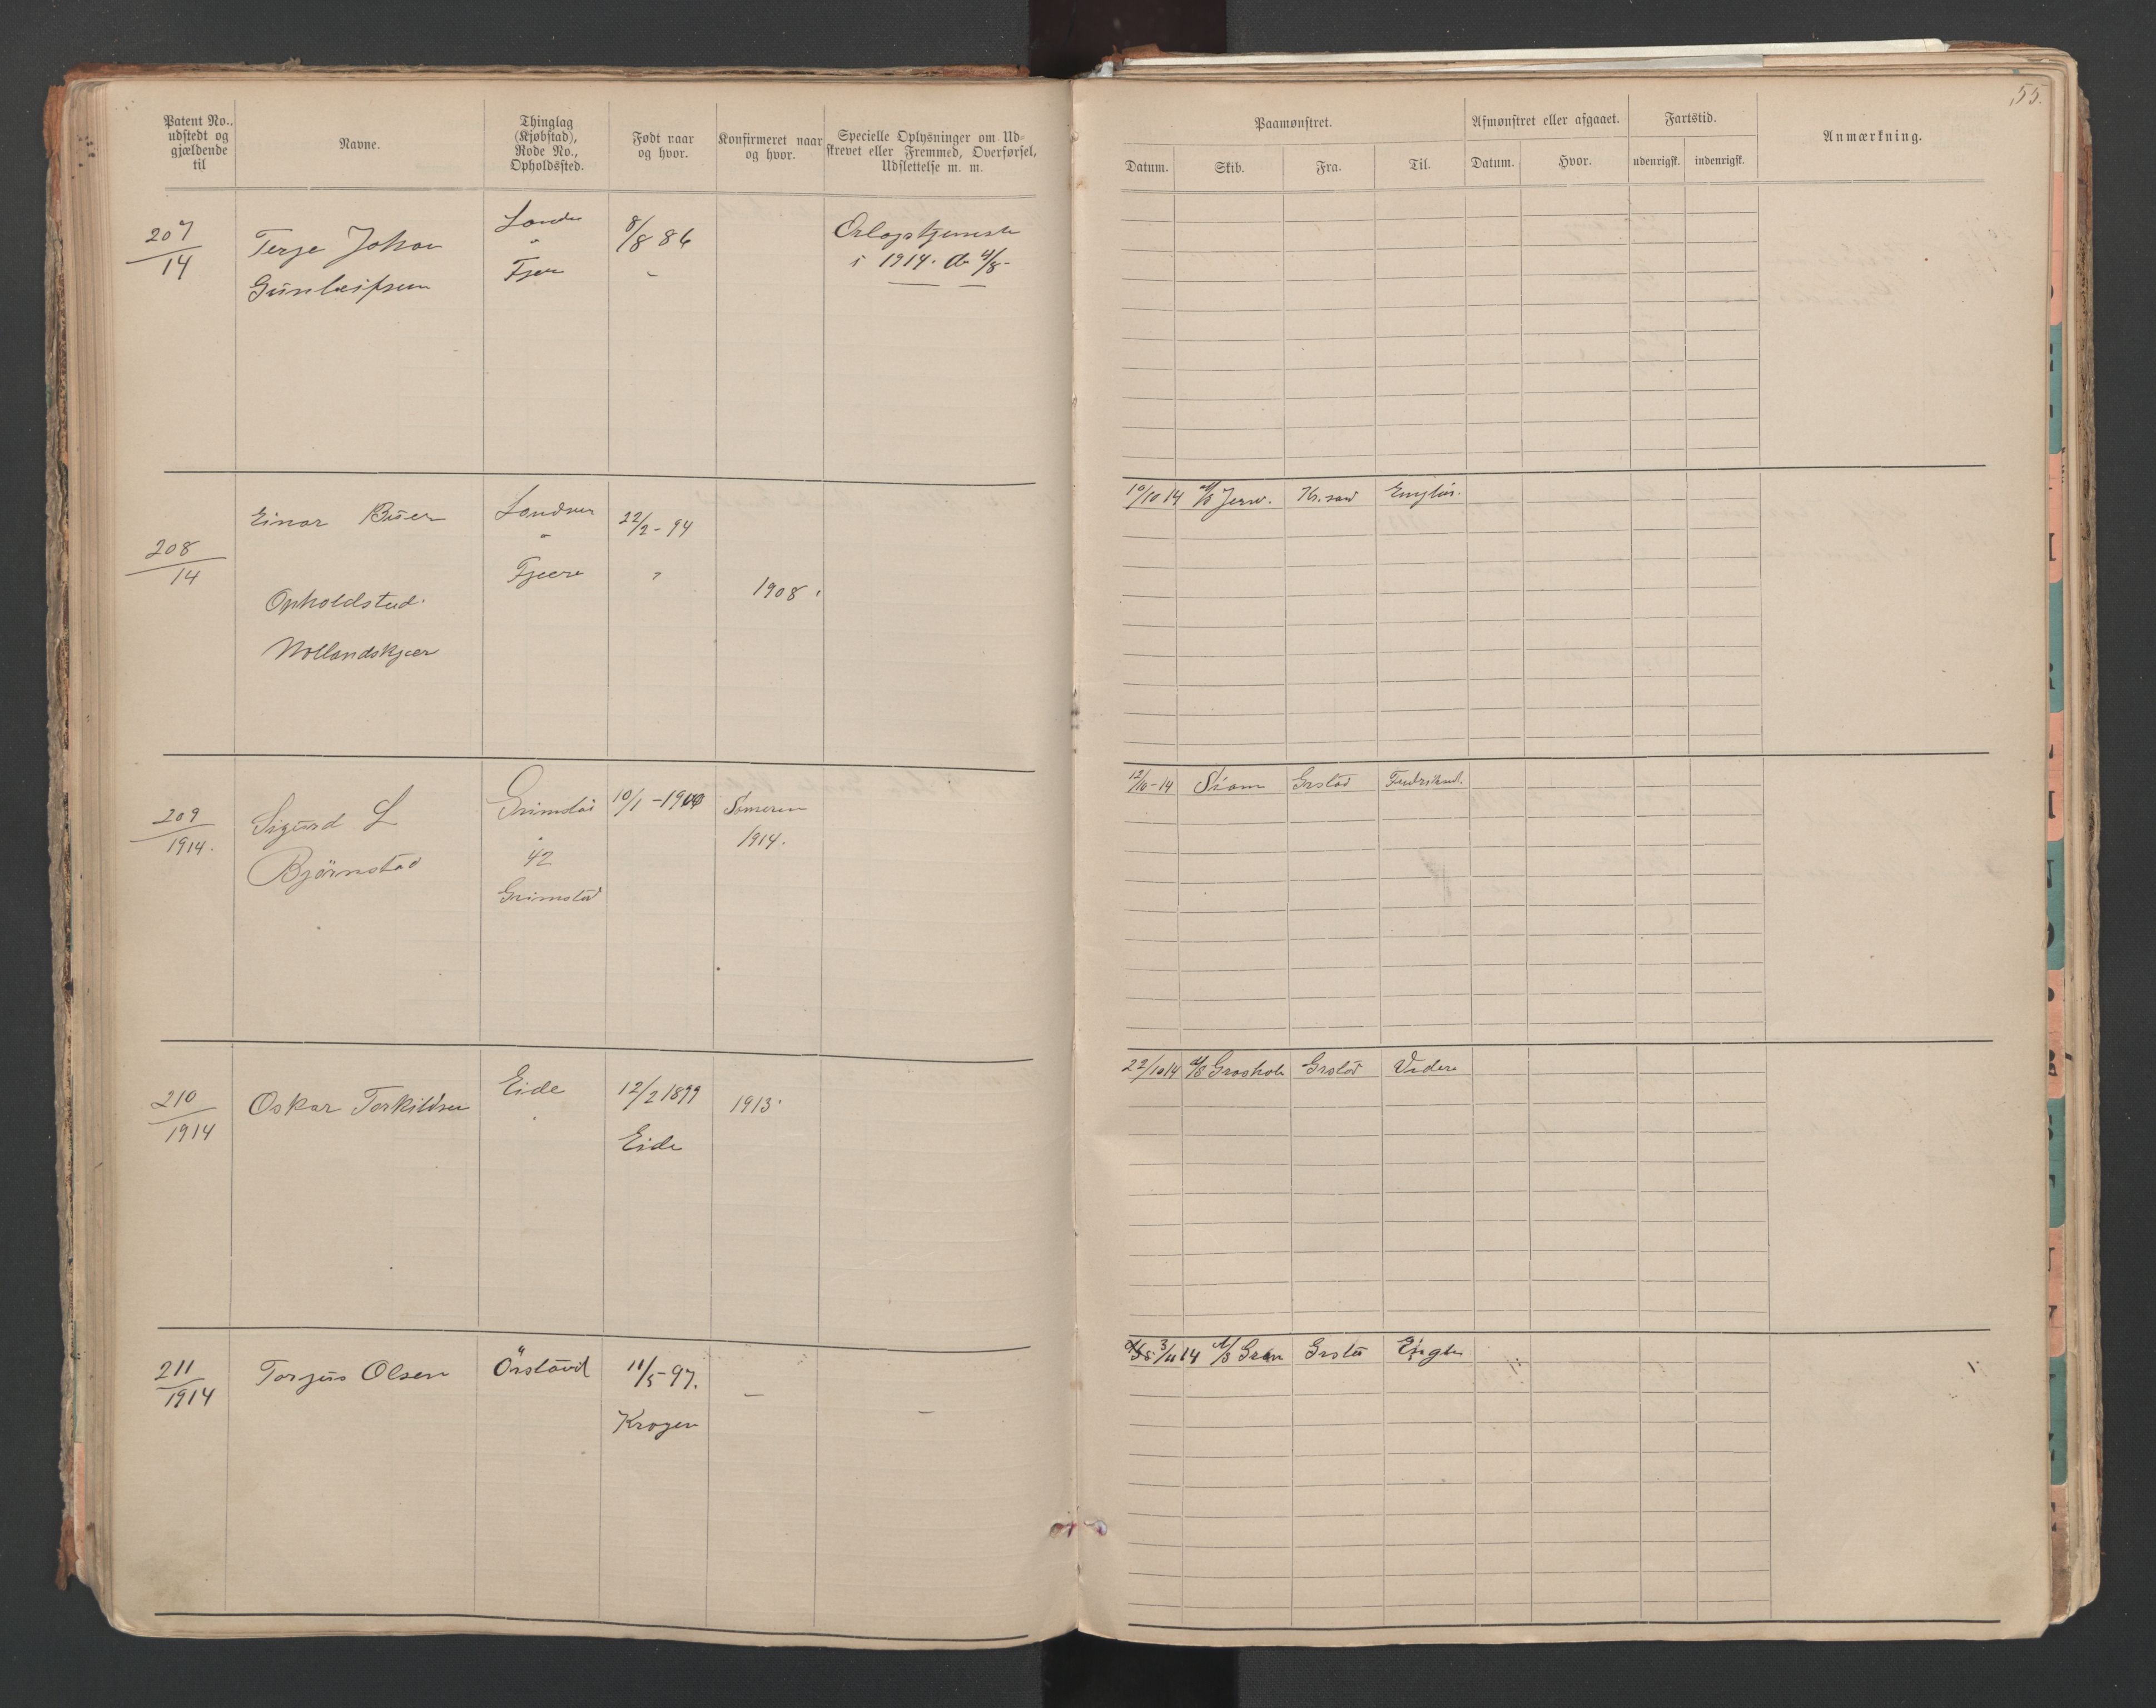 55.
Patent No., udstedt og gjældende til
Navne.
Thinglag (Kjøbstad), Rode No., Opholdssted.
Født naar og hvor.
Konfirmeret naar og hvor.
Specielle Oplysninger om Udskrevet eller Fremmed, Overførsel, Udslettelse m. m.
Paamønstret.
Afmønstret eller afgaaet.
Fartstid.
Anmærkning.
Datum.
Skib.
Fra.
Til.
Datum.
Hvor.
udenrigsk.
indenrigsk.
207/14
Terje Johan
Gunleifsen
Lande
"
Fjære
8/8 86
Orlogstjeneste
i 1914. 4/8-
208/14
Einar Buer
Opholdsted.
Mollandskjær
Landvig
"
Fjære
22/2-94
"
1908.
10/10 14
Kr.sand
209/1914.
Sigurd L
Bjørnstad
Grimstad
42
Grimstad
10/1-1900
Sommeren
1914.
12/10-14
Siam
Grstad
210/1914
Oskar Torkildsen
Eide
12/2 1899
Eide
1913.
22/10 14
Grstad
Videre
211/1914
Torjus Olsen
11/5-97.
Krogen
—
—
3/11 14
Grstad